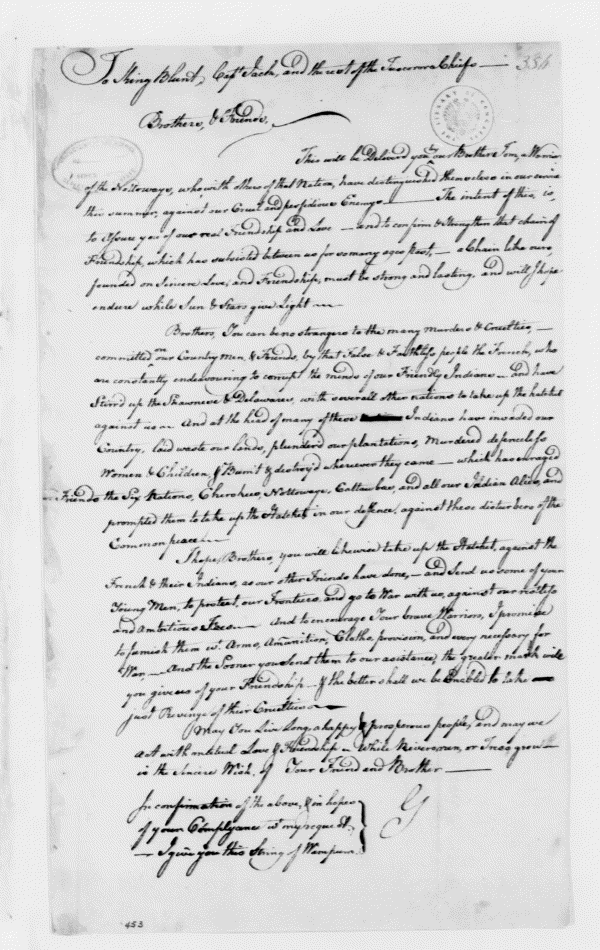 To King Blunt, Capt Jack, and the rest of the Tuscorora Chiefs — 336
Brothers, & Friends,
This will be Deliverd you by our Brother Tom, a Warrior
of the Nottoways, who with others of that Nation, have distinguished themselves in our service
this summer, against our Cruel and perfidious Enemys — The intent of this is,
to Assure you of our real Friendship and Love — and to confirm & Strengthen that chain of
Friendship, which has subsisted between us for so many ages past, — a Chain like ours,
founded on Sincere Love, and Friendship, must be strong and lasting, and will I hope
endure while Sun & Stars give Light —
Brothers, You can be no strangers to the many Murders & Cruelties, —
committed on our Country Men, & Friends, by that False & Faithless people the French, who
are constantly endeavouring to corrupt the minds of our Friendly Indians — and have
Stird up the Shawnese & Delawares, with severall other nations to take up the hatchet
against us — And at the head of many of these Indians have invaded our
Country, laid waste our lands, plunderd our plantations, Murdered defenceless
Women & Children, & Burnt & destroy'd wherever they came — which has enraged
Friends the Six Nations, Cherokees, Nottoways, Cattawbas, and all our Indian Alies, and
prompted them to take up the Hatchet, in our deffence, against these disturbers of the
Common peace —
I hope, Brothers, you will likewise take up the Hatchet, against the
French & their Indians, as our other Friends have done, — and Send us some of your
Young Men, to protect our Frontiers, and go to War with us, against our restless
and Ambitious Foes — And to encourage Your brave Warriors, I promise
to furnish them wt. Arms, Amunition, Cloths, provision, and every necessary for
War, — And the Sooner you send them to our assistance, the greater mark will
you give us of your Friendship — & the better shall we be Enabled to take —
just Revenge of their Cruelties —
May You Live Long, a happy & prosperous people, and may we
act with mutual Love & Friendship — While Rivers run, or Trees grow —
is the Sincere Wish, of Your Friend and Brother —
In confirmation of the above, & in hopes
of your Complyance wt my request,
— I give you this String of Wampum
G
453